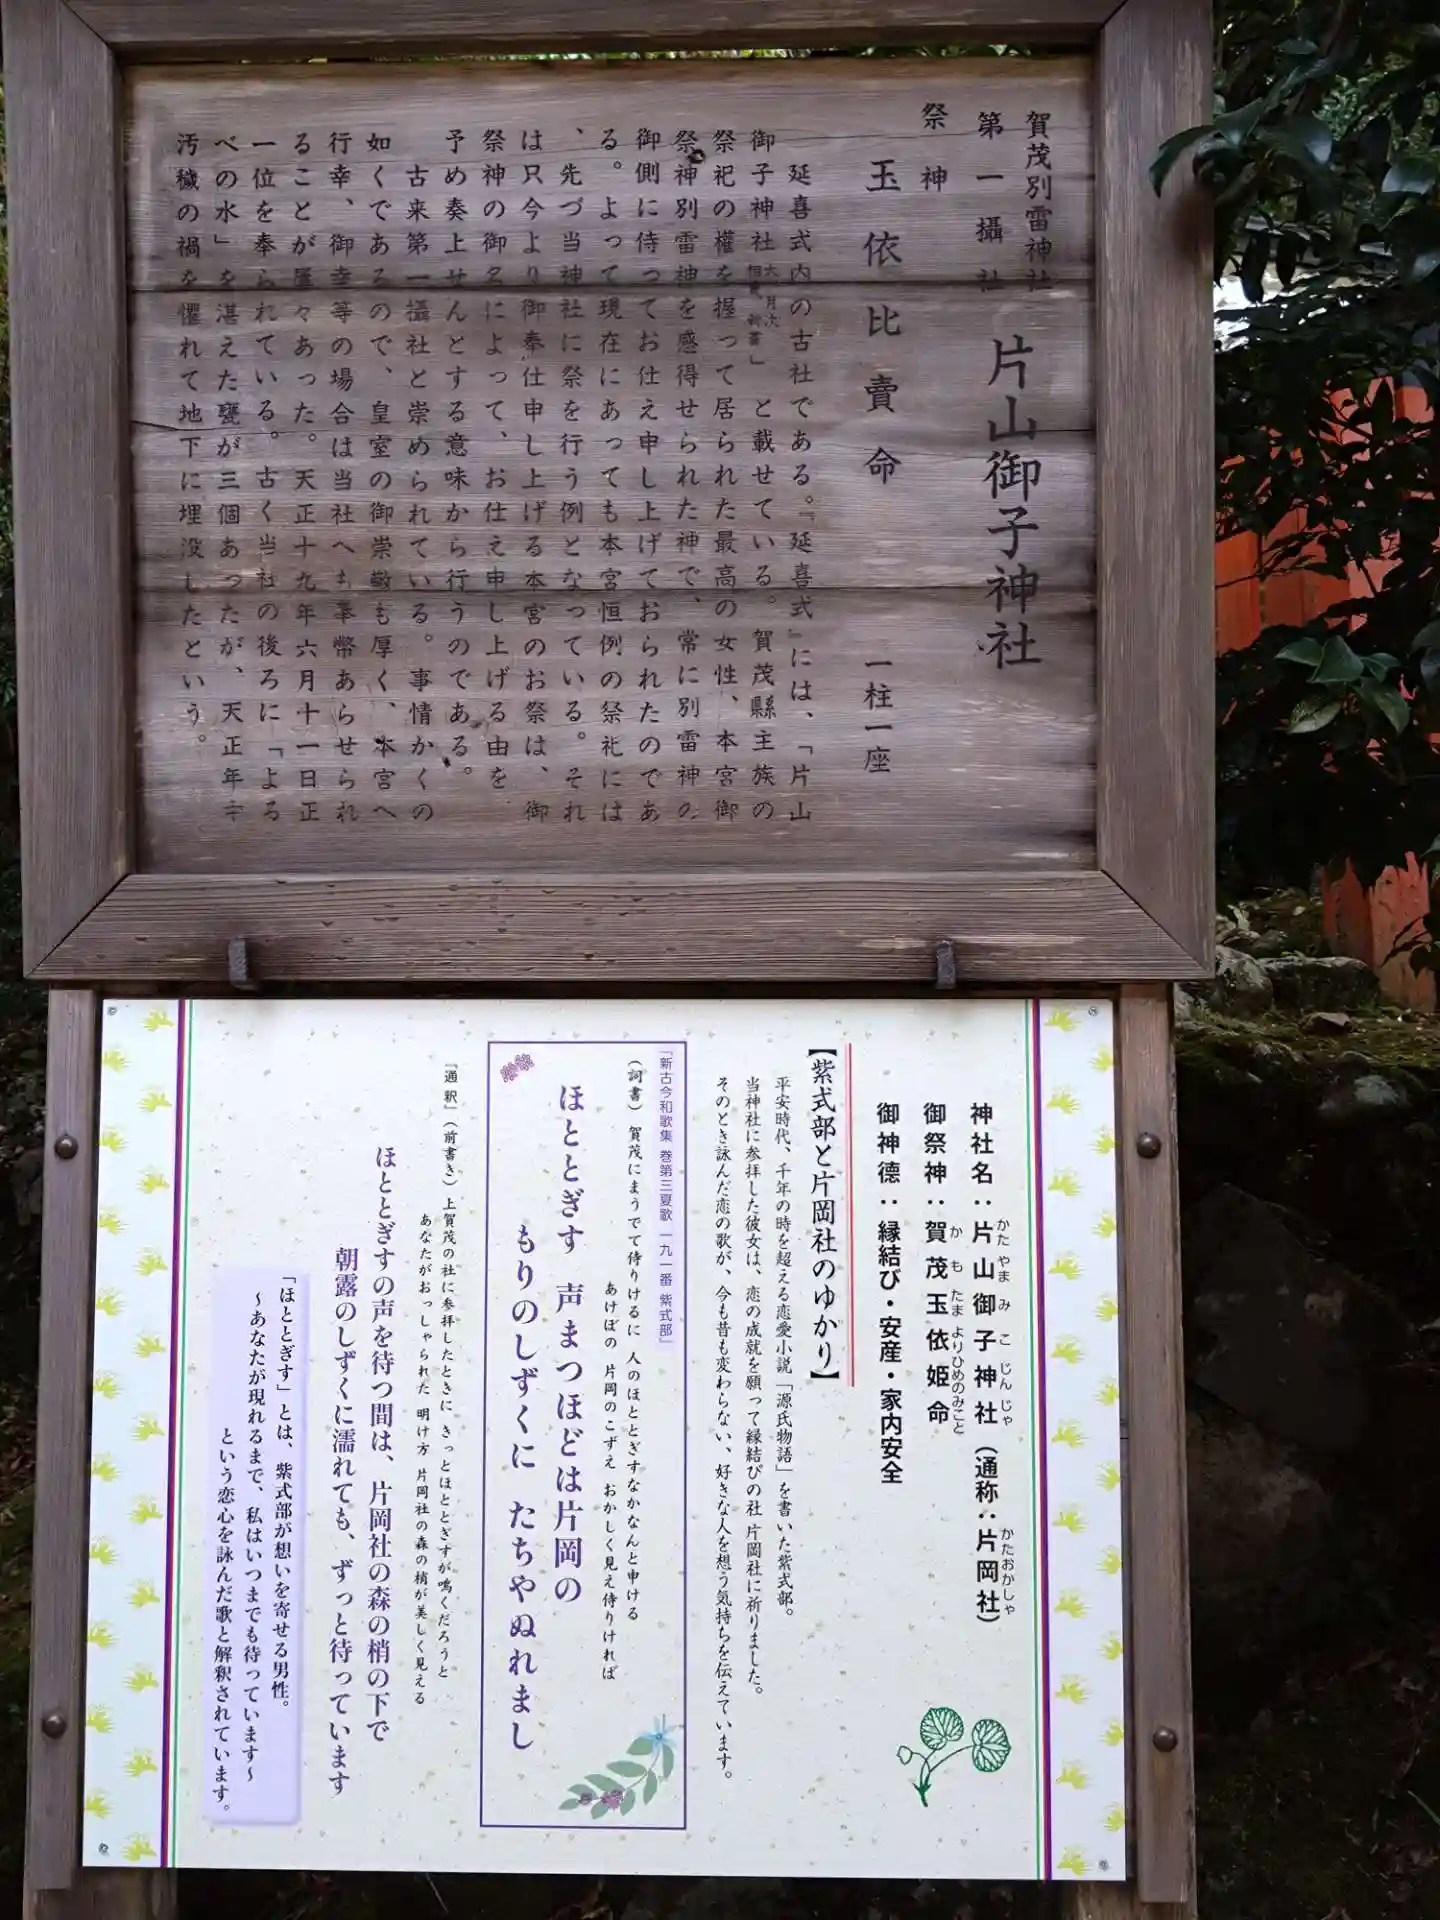 賀茂別雷神社
第一攝社
片山御子神社
祭神
玉依比賣命 一柱一座
延喜式内の古社である。『延喜式』には、「片山
御子神社 大 月次 新嘗」と載せている。賀茂縣主族の
祭祀の權を握って居られた最高の女性、本宮御
祭神別雷神を感得せられた神で、常に別雷神の
御側に侍ってお仕え申し上げておられたのであ
る。よって現在にあっても本宮恒例の祭礼には
、先づ当神社に祭を行う例となっている。それ
は只今より御奉仕申し上げる本宮のお祭は、御
祭神の御名によって、お仕え申し上げる由を
予め奏上せんとする意味から行うのである。
古来第一攝社と崇められている。事情かくの
如くであるので、皇室の御崇敬も厚く、本宮へ
行幸、御幸等の場合は当社へも奉幣あらせられ
ることが屡々あった。天正十九年六月十一日正
一位を奉られている。古く当社の後ろに「よる
べの水」を湛えた甕が三個あったが、天正年中
汚穢の禍を懼れて地下に埋没したという。
神社名：片山御子神社（通称：片岡社）
かた やま み こ じんじゃ かたおかしゃ
御祭神：賀茂玉依姫命
か も たま よりひめのみこと
御神徳：縁結び・安産・家内安全
【紫式部と片岡社のゆかり】
平安時代、千年の時を超える恋愛小説「源氏物語」を書いた紫式部。
当神社に参拝した彼女は、恋の成就を願って縁結びの社 片岡社に祈りました。
そのとき詠んだ恋の歌が、今も昔も変わらない、好きな人を想う気持ちを伝えています。
「新古今和歌集 巻第三夏歌 一九一番 紫式部」
（詞書）賀茂にまうでて侍りけるに 人のほととぎすなかなんと申ける
あけぼの 片岡のこずえ おかしく見え侍りければ
ほととぎす 声まつほどは片岡の
もりのしずくに たちやぬれまし
『通釈』（前書き）上賀茂の社に参拝したときに きっとほととぎすが鳴くだろうと
あなたがおっしゃられた 明け方 片岡社の森の梢が美しく見える
ほととぎすの声を待つ間は、片岡社の森の梢の下で
朝露のしずくに濡れても、ずっと待っています
「ほととぎす」とは、紫式部が想いを寄せる男性。
～あなたが現れるまで、私はいつまでも待っています～
という恋心を詠んだ歌と解釈されています。